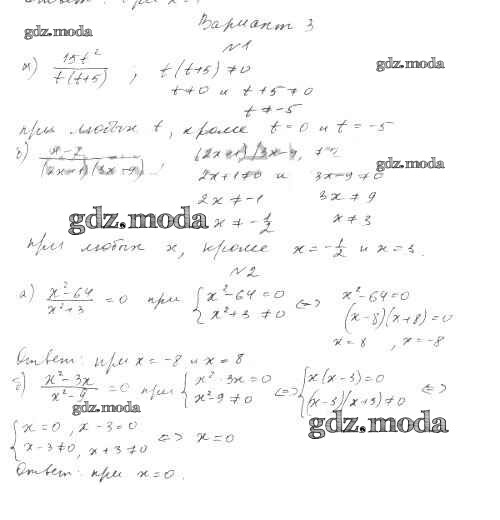 Ответ: при x
gdz.moda
Вариант 3
N1
а) 15t² / t(t+5) ; t(t+5) ≠ 0
gdz.moda
t ≠ 0 и t+5 ≠ 0
t ≠ -5
при любых t, кроме t = 0 и t = -5
б) (2x+1)(3x-9)
gdz.moda
2x+1 ≠ 0 и 3x-9 ≠ 0
2x ≠ -1 3x ≠ 9
gdz.moda
x ≠ -1/2 x ≠ 3
при любых x, кроме x = -1/2 и x = 3.
N2
а) x²-64 / x²+3 = 0 при { x²-64 = 0 <=> x²-64 = 0
x²+3 ≠ 0 (x-8)(x+8) = 0
x = 8 , x = -8
Ответ: при x = -8 и x = 8
б) x²-3x / x²-9 = 0 при { x²-3x = 0 <=> { x(x-3) = 0
x²-9 ≠ 0 (x-3)(x+3) ≠ 0 <=>
gdz.moda
gdz.moda
{ x = 0, x-3 = 0 <=> x = 0
x-3 ≠ 0, x+3 ≠ 0
Ответ: при x = 0.